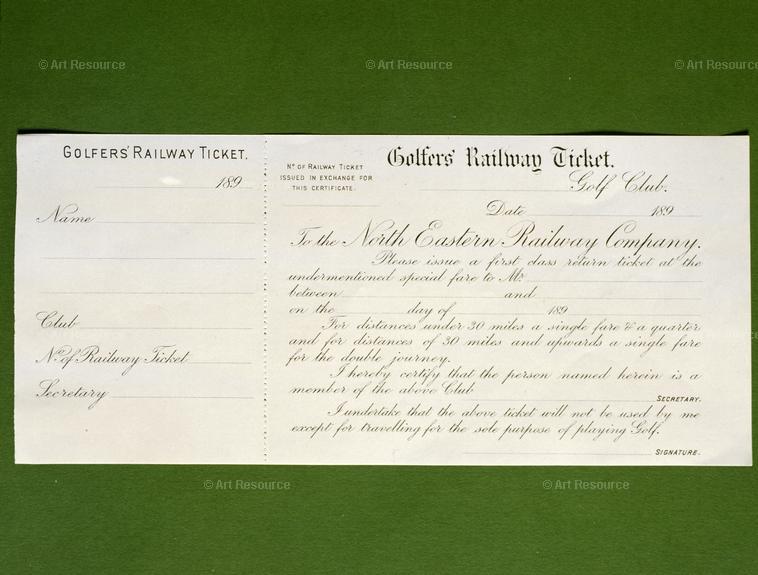 © Art Resource © Art Resource © Art Resource
GOLFERS' RAILWAY TICKET.
189
Name
Club
No. of Railway Ticket
Secretary
No. OF RAILWAY TICKET
ISSUED IN EXCHANGE FOR
THIS CERTIFICATE.
Golfers' Railway Ticket.
Golf Club.
Date 189
To the North Eastern Railway Company.
Please issue a first class return ticket at the
undermentioned special fare to Mr.
between and
on the day of 189
For distances under 30 miles a single fare & a quarter
and for distances of 30 miles and upwards a single fare
for the double journey.
I hereby certify that the person named herein is a
member of the above Club
SECRETARY.
I undertake that the above ticket will not be used by me
except for travelling for the sole purpose of playing Golf.
SIGNATURE.
© Art Resource © Art Resource